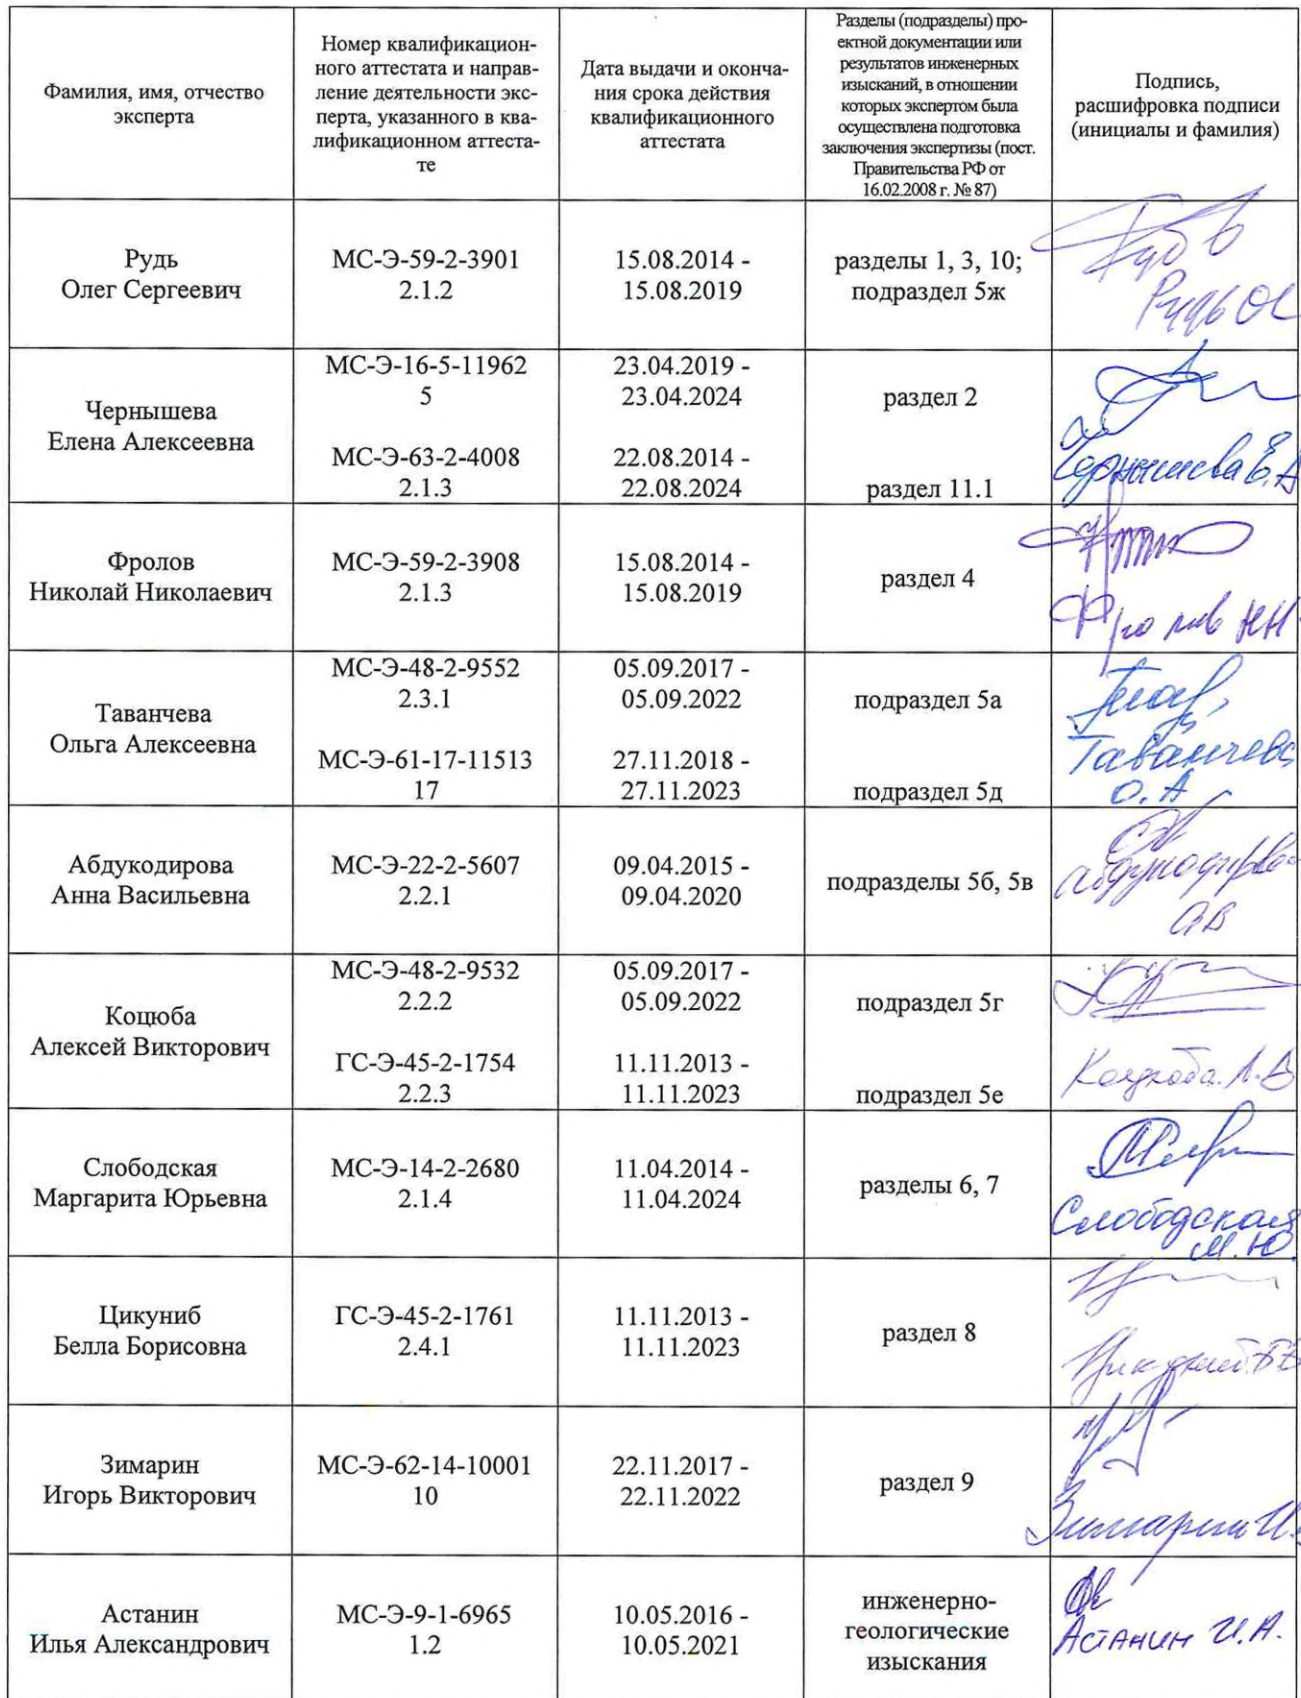 Фамилия, имя, отчество
эксперта
Номер квалификацион-
ного аттестата и направ-
ление деятельности экс-
перта, указанного в ква-
лификационном аттеста-
те
Дата выдачи и оконча-
ния срока действия
квалификационного
аттестата
Разделы (подразделы) про-
ектной документации или
результатов инженерных
изысканий, в отношении
которых экспертом была
осуществлена подготовка
заключения экспертизы (пост.
Правительства РФ от
16.02.2008 г. № 87)
Подпись,
расшифровка подписи
(инициалы и фамилия)
Рудь
Олег Сергеевич
МС-Э-59-2-3901
2.1.2
15.08.2014 -
15.08.2019
разделы 1, 3, 10;
подраздел 5ж
Рудь ОС
Чернышева
Елена Алексеевна
МС-Э-16-5-11962
5
МС-Э-63-2-4008
2.1.3
23.04.2019 -
23.04.2024
22.08.2014 -
22.08.2024
раздел 2
раздел 11.1
Чернышева Е.А
Фролов
Николай Николаевич
МС-Э-59-2-3908
2.1.3
15.08.2014 -
15.08.2019
раздел 4
Фролов НН
Таванчева
Ольга Алексеевна
МС-Э-48-2-9552
2.3.1
МС-Э-61-17-11513
17
05.09.2017 -
05.09.2022
27.11.2018 -
27.11.2023
подраздел 5а
подраздел 5д
Таванчева
О.А
Абдукодирова
Анна Васильевна
МС-Э-22-2-5607
2.2.1
09.04.2015 -
09.04.2020
подразделы 5б, 5в
Абдукодирова
АВ
Коцюба
Алексей Викторович
МС-Э-48-2-9532
2.2.2
ГС-Э-45-2-1754
2.2.3
05.09.2017 -
05.09.2022
11.11.2013 -
11.11.2023
подраздел 5г
подраздел 5е
Коцюба А.В
Слободская
Маргарита Юрьевна
МС-Э-14-2-2680
2.1.4
11.04.2014 -
11.04.2024
разделы 6, 7
Слободская
М.Ю.
Цикуниб
Белла Борисовна
ГС-Э-45-2-1761
2.4.1
11.11.2013 -
11.11.2023
раздел 8
Цикуниб ББ
Зимарин
Игорь Викторович
МС-Э-62-14-10001
10
22.11.2017 -
22.11.2022
раздел 9
Зимарин И.
Астанин
Илья Александрович
МС-Э-9-1-6965
1.2
10.05.2016 -
10.05.2021
инженерно-
геологические
изыскания
Астанин И.А.